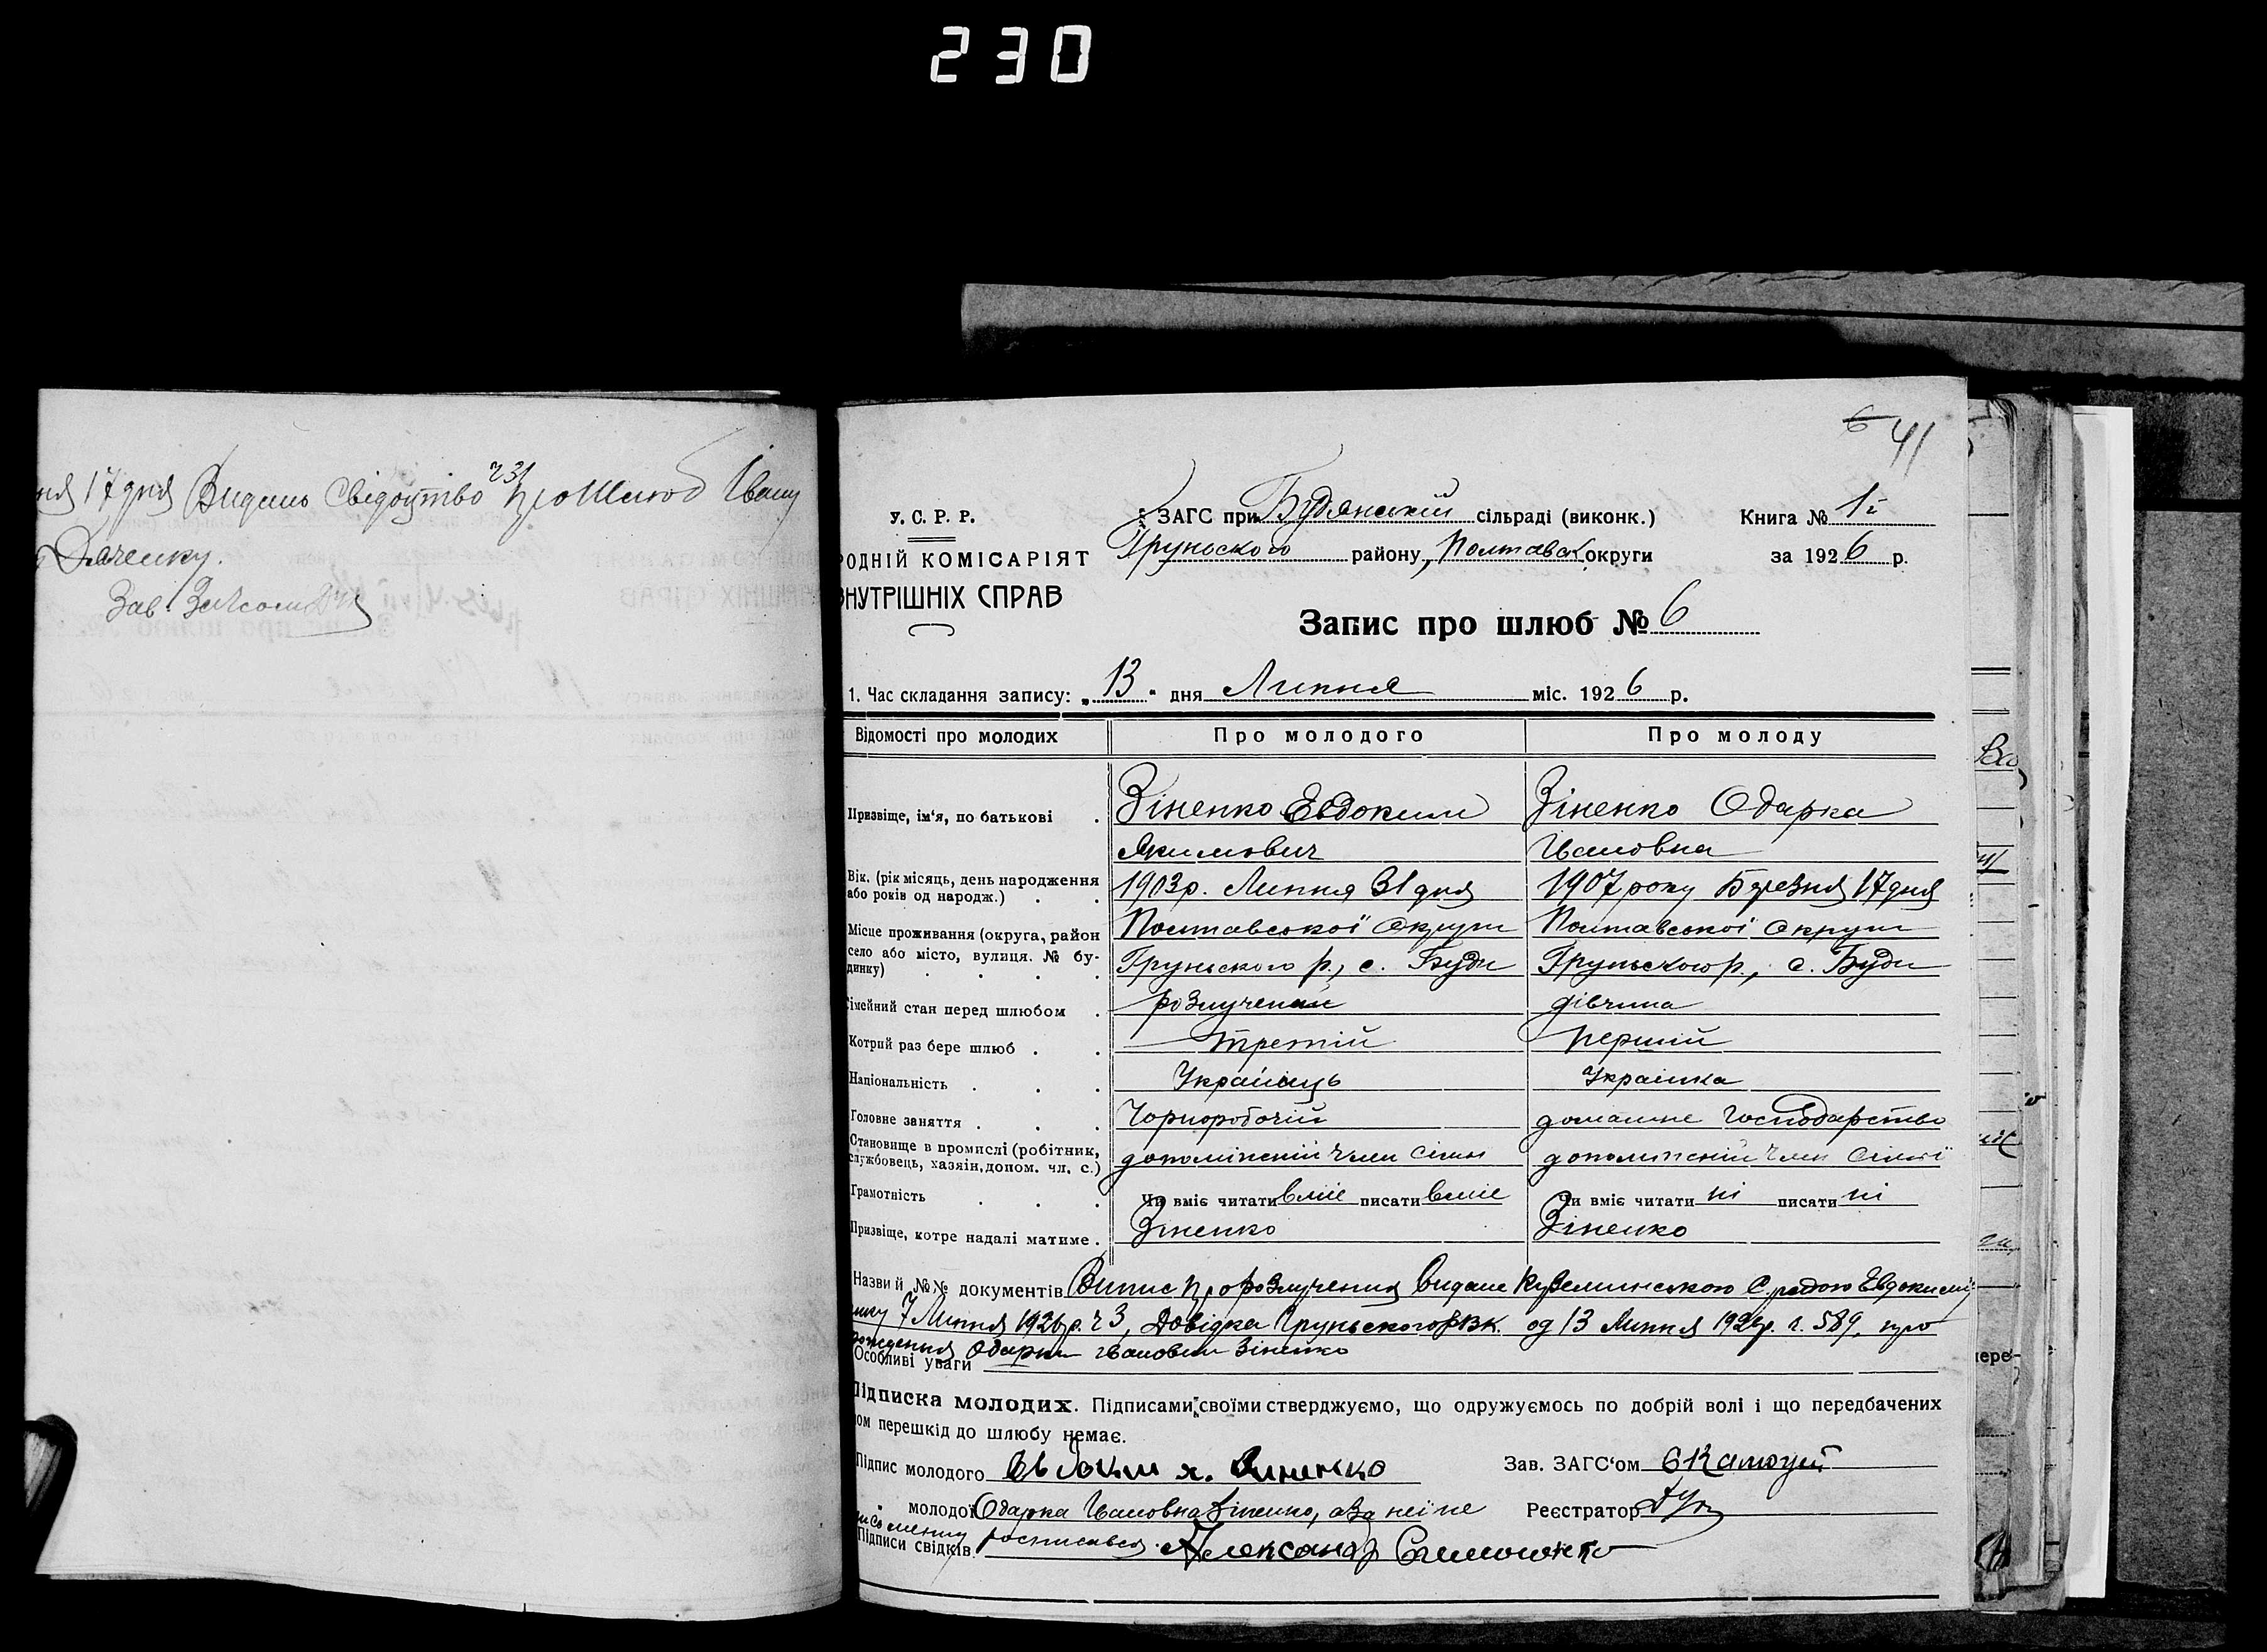 230
ня 17 дня Видань Свідоцтво ч 31 про Шлюб Івану
Дяченку.
Зав. Загсом
6 41
У. С. Р. Р.
РОДНІЙ КОМІСАРІЯТ
ВНУТРІШНІХ СПРАВ
ЗАГС при Будянській сільраді (виконк.)
Груньского району, Полтавськ округи
Книга № 1й
за 1926 р.
Запис про шлюб № 6
1. Час складання запису: „13" дня Липня міс. 1926 р.
Відомості про молодих Про молодого Про молоду
Призвіще, ім'я, по батькові . Зіненко Евдоким Зіненко Одарка
Якимович Ивановна
Вік. (рік місяць, день народження або років од народж.) . . 1903 р. Липня 31 дня 1907 року Березня 17 дня
Місце проживання (округа, район село або місто, вулиця. № будинку) . . . . Полтавської Округи Полтавської Округи
Груньского р., с. Буди Груньского р., с. Буди
сімейний стан перед шлюбом . розлучений дівчина
Котрий раз бере шлюб . . третій перший
Національність . . . Українець Українка
Головне заняття . . . Чорноробочій домашне господарство
Становище в промислі (робітник, службовець, хазяін, допом. чл. с.) допоміжній член сімї допоміжній член сімьї
Грамотність . . . Чи вміє читати вміє писати вміє Чи вміє читати ні писати ні
Призвіще, котре надалі матиме . Зіненко Зіненко
Назви й №№ документів Випис про розлучення видане Куземинською С.радою Евдокиму
7 Липня 1926 р. ч 3, Довідка Груньского РВК. од 13 Липня 1926 р. ч. 589, про
рождения Одарки Ивановни Зіненко
Особливі уваги
Підписка молодих. Підписами своїми стверджуємо, що одружуємось по добрій волі і що передбачених
ом перешкід до шлюбу немає.
Підпис молодого Евдоким я. Зиненко Зав. ЗАГС'ом
" молодої Одарка Ивановна Зіненко, а за неї не Реєстратор
письменну росписався Александр
Підписи свідків